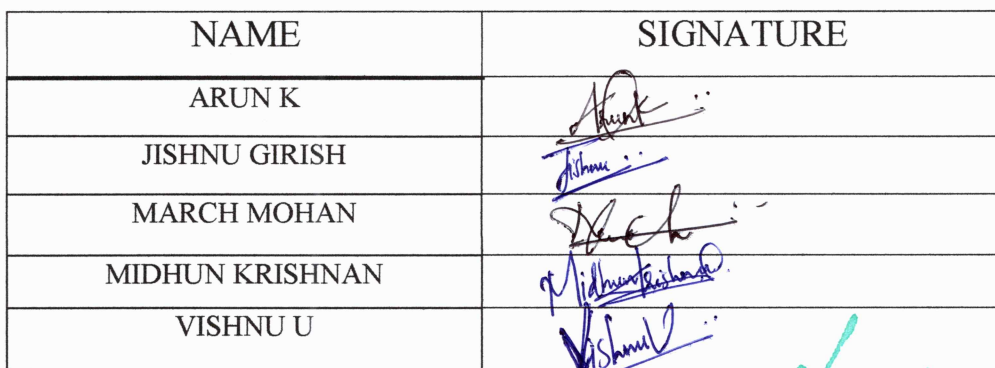 NAME SIGNATURE
ARUN K ArunK
JISHNU GIRISH Jishnu
MARCH MOHAN March
MIDHUN KRISHNAN Midhun Krishnan
VISHNU U Vishnu U